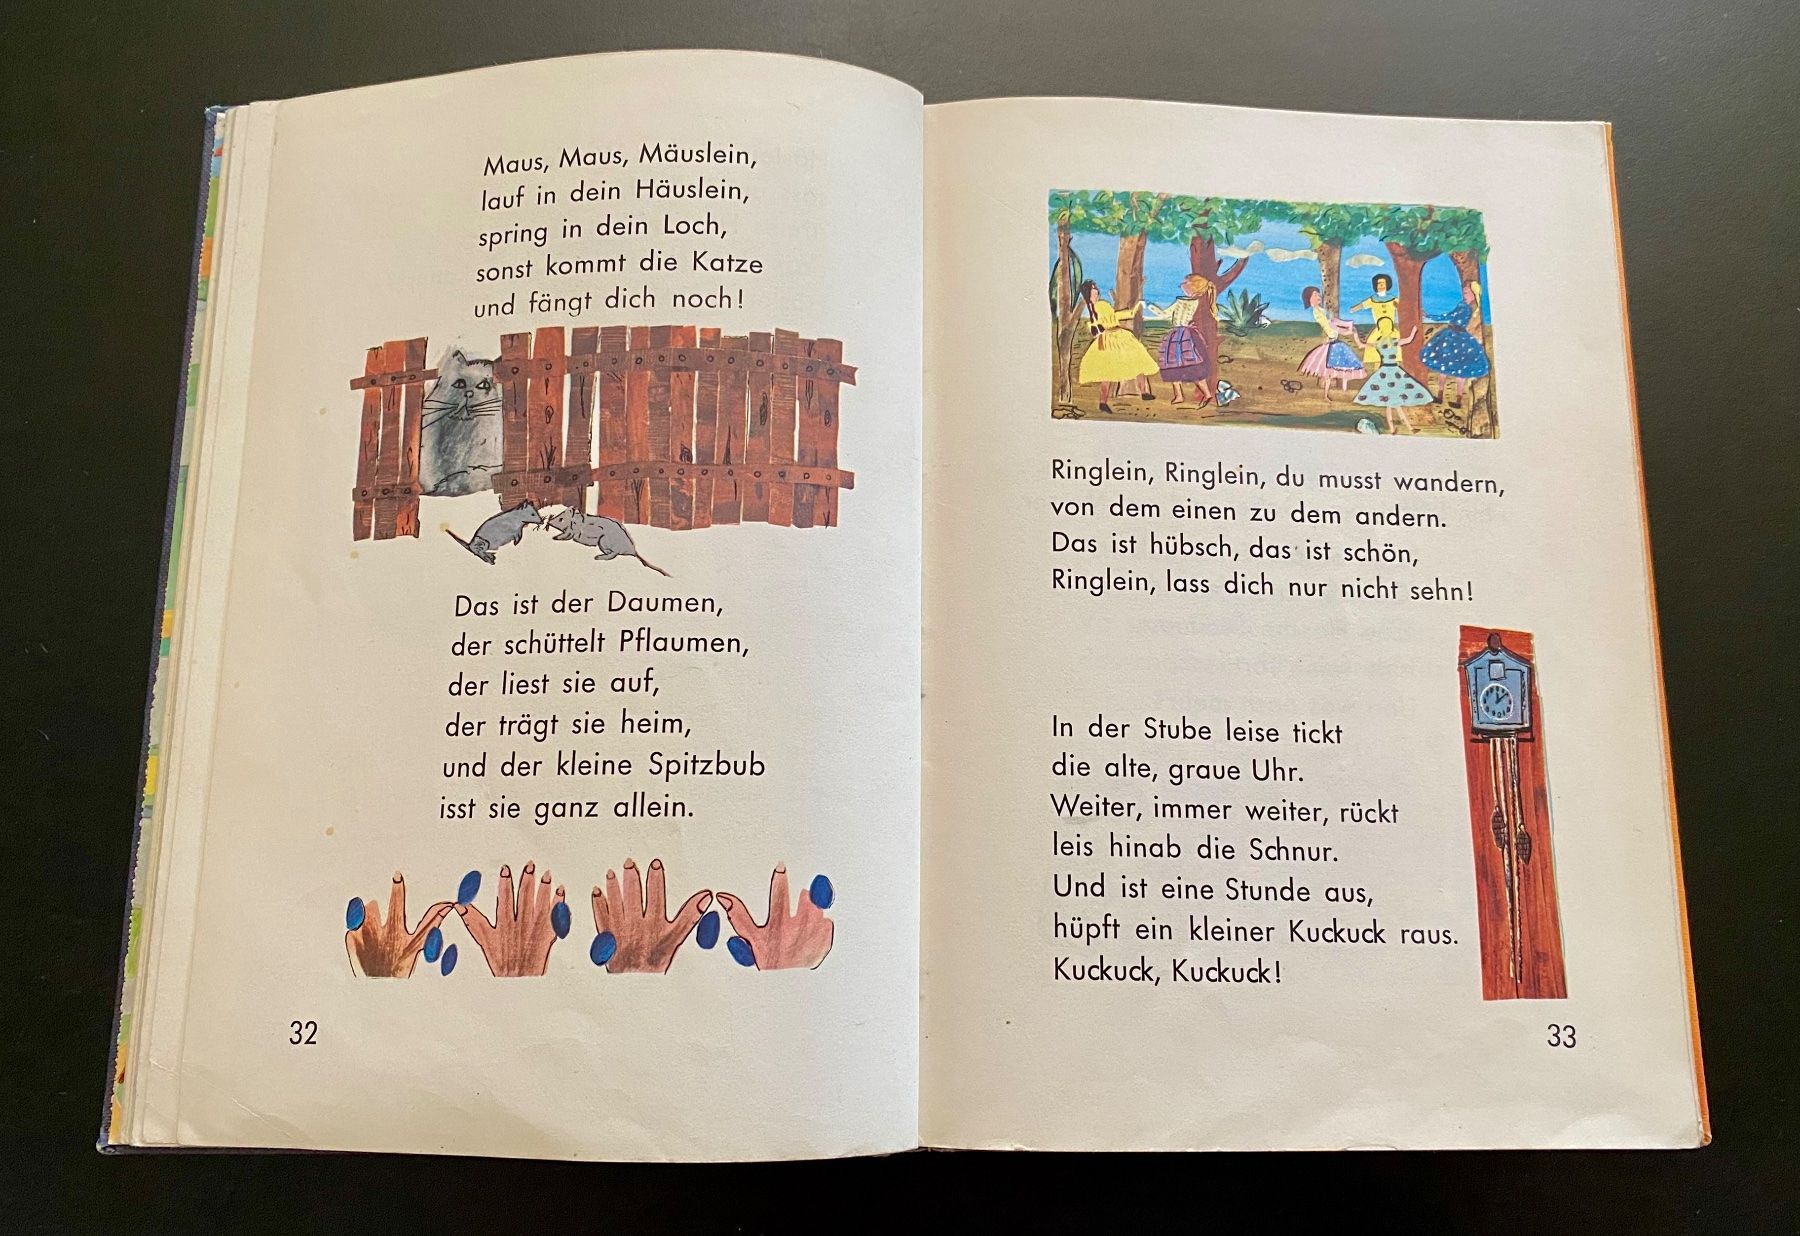 Maus, Maus, Mäuslein,
lauf in dein Häuslein,
spring in dein Loch,
sonst kommt die Katze
und fängt dich noch!
Das ist der Daumen,
der schüttelt Pflaumen,
der liest sie auf,
der trägt sie heim,
und der kleine Spitzbub
isst sie ganz allein.
32
Ringlein, Ringlein, du musst wandern,
von dem einen zu dem andern.
Das ist hübsch, das ist schön,
Ringlein, lass dich nur nicht sehn!
In der Stube leise tickt
die alte, graue Uhr.
Weiter, immer weiter, rückt
leis hinab die Schnur.
Und ist eine Stunde aus,
hüpft ein kleiner Kuckuck raus.
Kuckuck, Kuckuck!
33